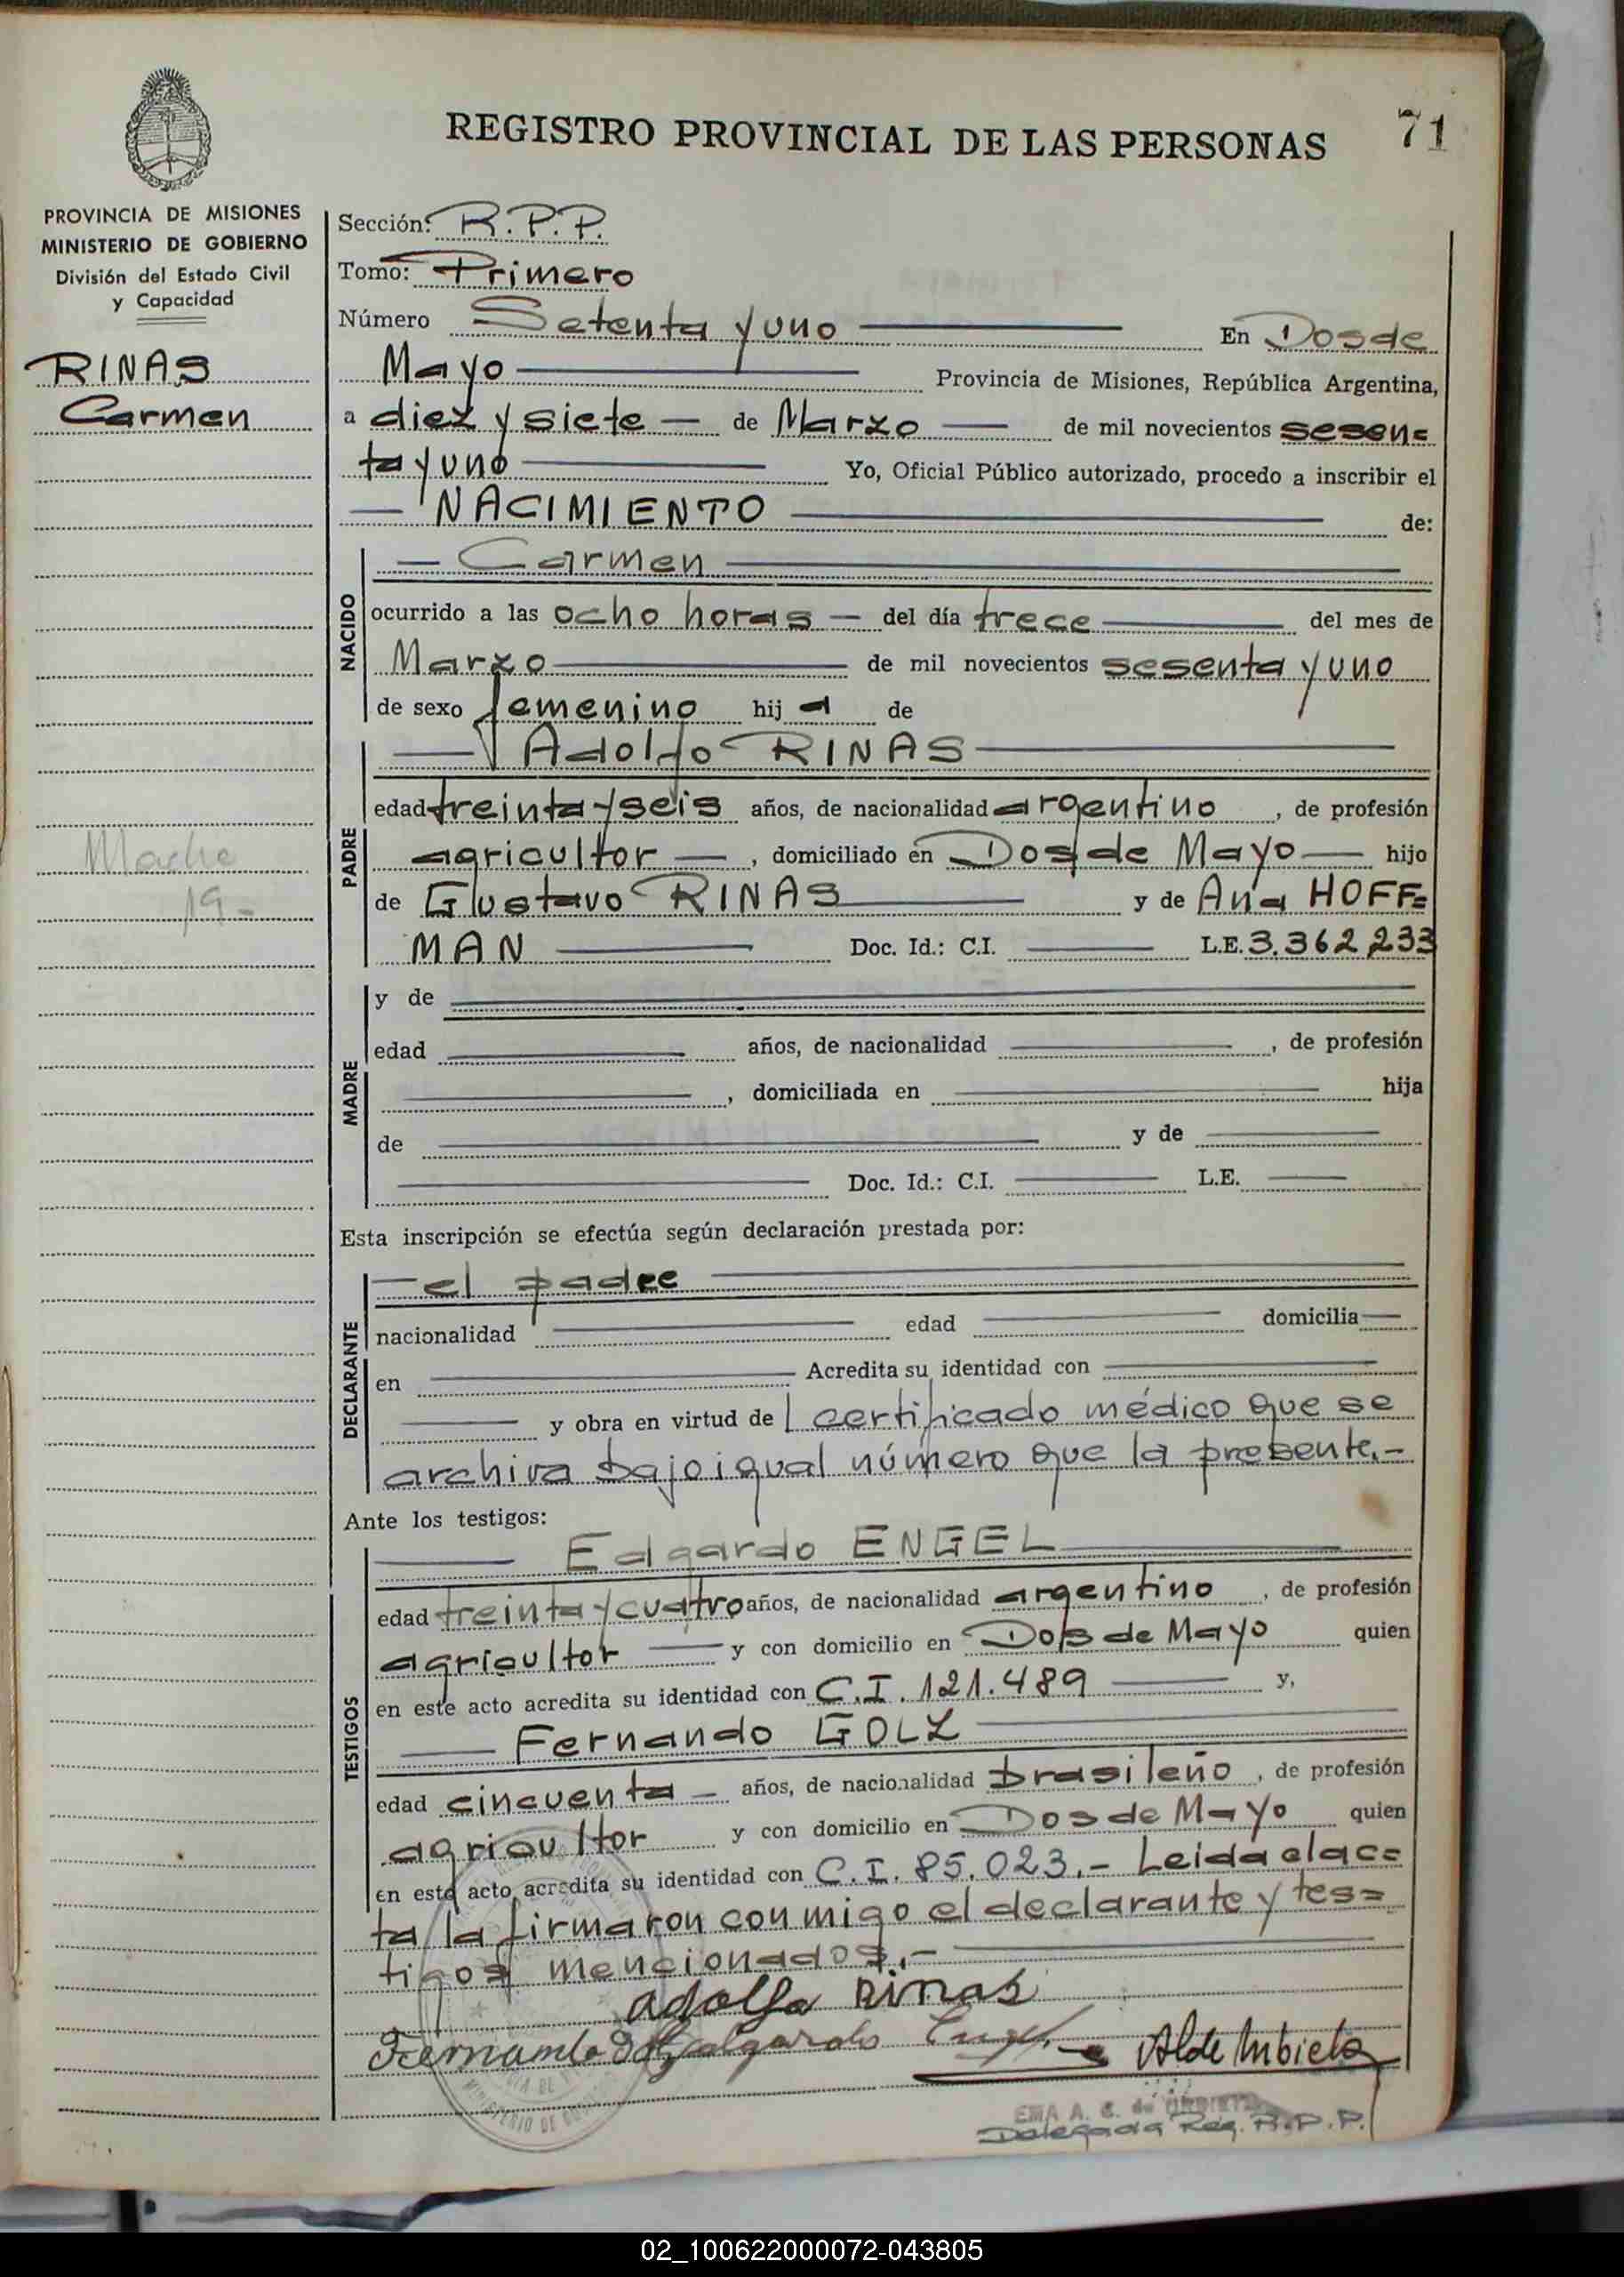 71
REGISTRO PROVINCIAL DE LAS PERSONAS
PROVINCIA DE MISIONES
MINISTERIO DE GOBIERNO
División del Estado Civil
y Capacidad
RINAS
Carmen
19-
Sección: R.P.P.
Tomo: Primero
Número Setenta y uno En Dos de
Mayo Provincia de Misiones, República Argentina,
a diez y siete — de Marzo — de mil novecientos sesen=
ta y uno Yo, Oficial Público autorizado, procedo a inscribir el
— NACIMIENTO — de:
NACIDO
— Carmen —
ocurrido a las ocho horas — del día trece — del mes de
Marzo — de mil novecientos sesenta y uno
de sexo femenino hija de
PADRE
— Adolfo RINAS —
edad treinta y seis años, de nacionalidad argentino, de profesión
agricultor —, domiciliado en Dos de Mayo — hijo
de Gustavo RINAS — y de Ana HOFF=
MAN — Doc. Id.: C.I. — L.E. 3.362.233
MADRE
y de —
edad — años, de nacionalidad —, de profesión
—, domiciliada en — hija
de — y de —
— Doc. Id.: C.I. — L.E. —
Esta inscripción se efectúa según declaración prestada por:
DECLARANTE
— el padre —
nacionalidad — edad — domicilia —
en — Acredita su identidad con —
— y obra en virtud del certificado médico que se
archiva bajo igual número que la presente.-
Ante los testigos:
TESTIGOS
— Edgardo ENGEL —
edad treinta y cuatro años, de nacionalidad argentino, de profesión
agricultor — y con domicilio en Dos de Mayo quien
en este acto acredita su identidad con C.I. 121.489 — y,
— Fernando GOLZ —
edad cincuenta — años, de nacionalidad brasileño, de profesión
agricultor y con domicilio en Dos de Mayo quien
en este acto acredita su identidad con C.I. 85.023.- Leida elac=
ta la firmaron conmigo el declarante y tes=
tigos mencionados.-
adolfo Rinas
Fernando Edgardo
EMA A. C. de URBIETA
Delegada Reg. R.P.P.
02_100622000072-043805